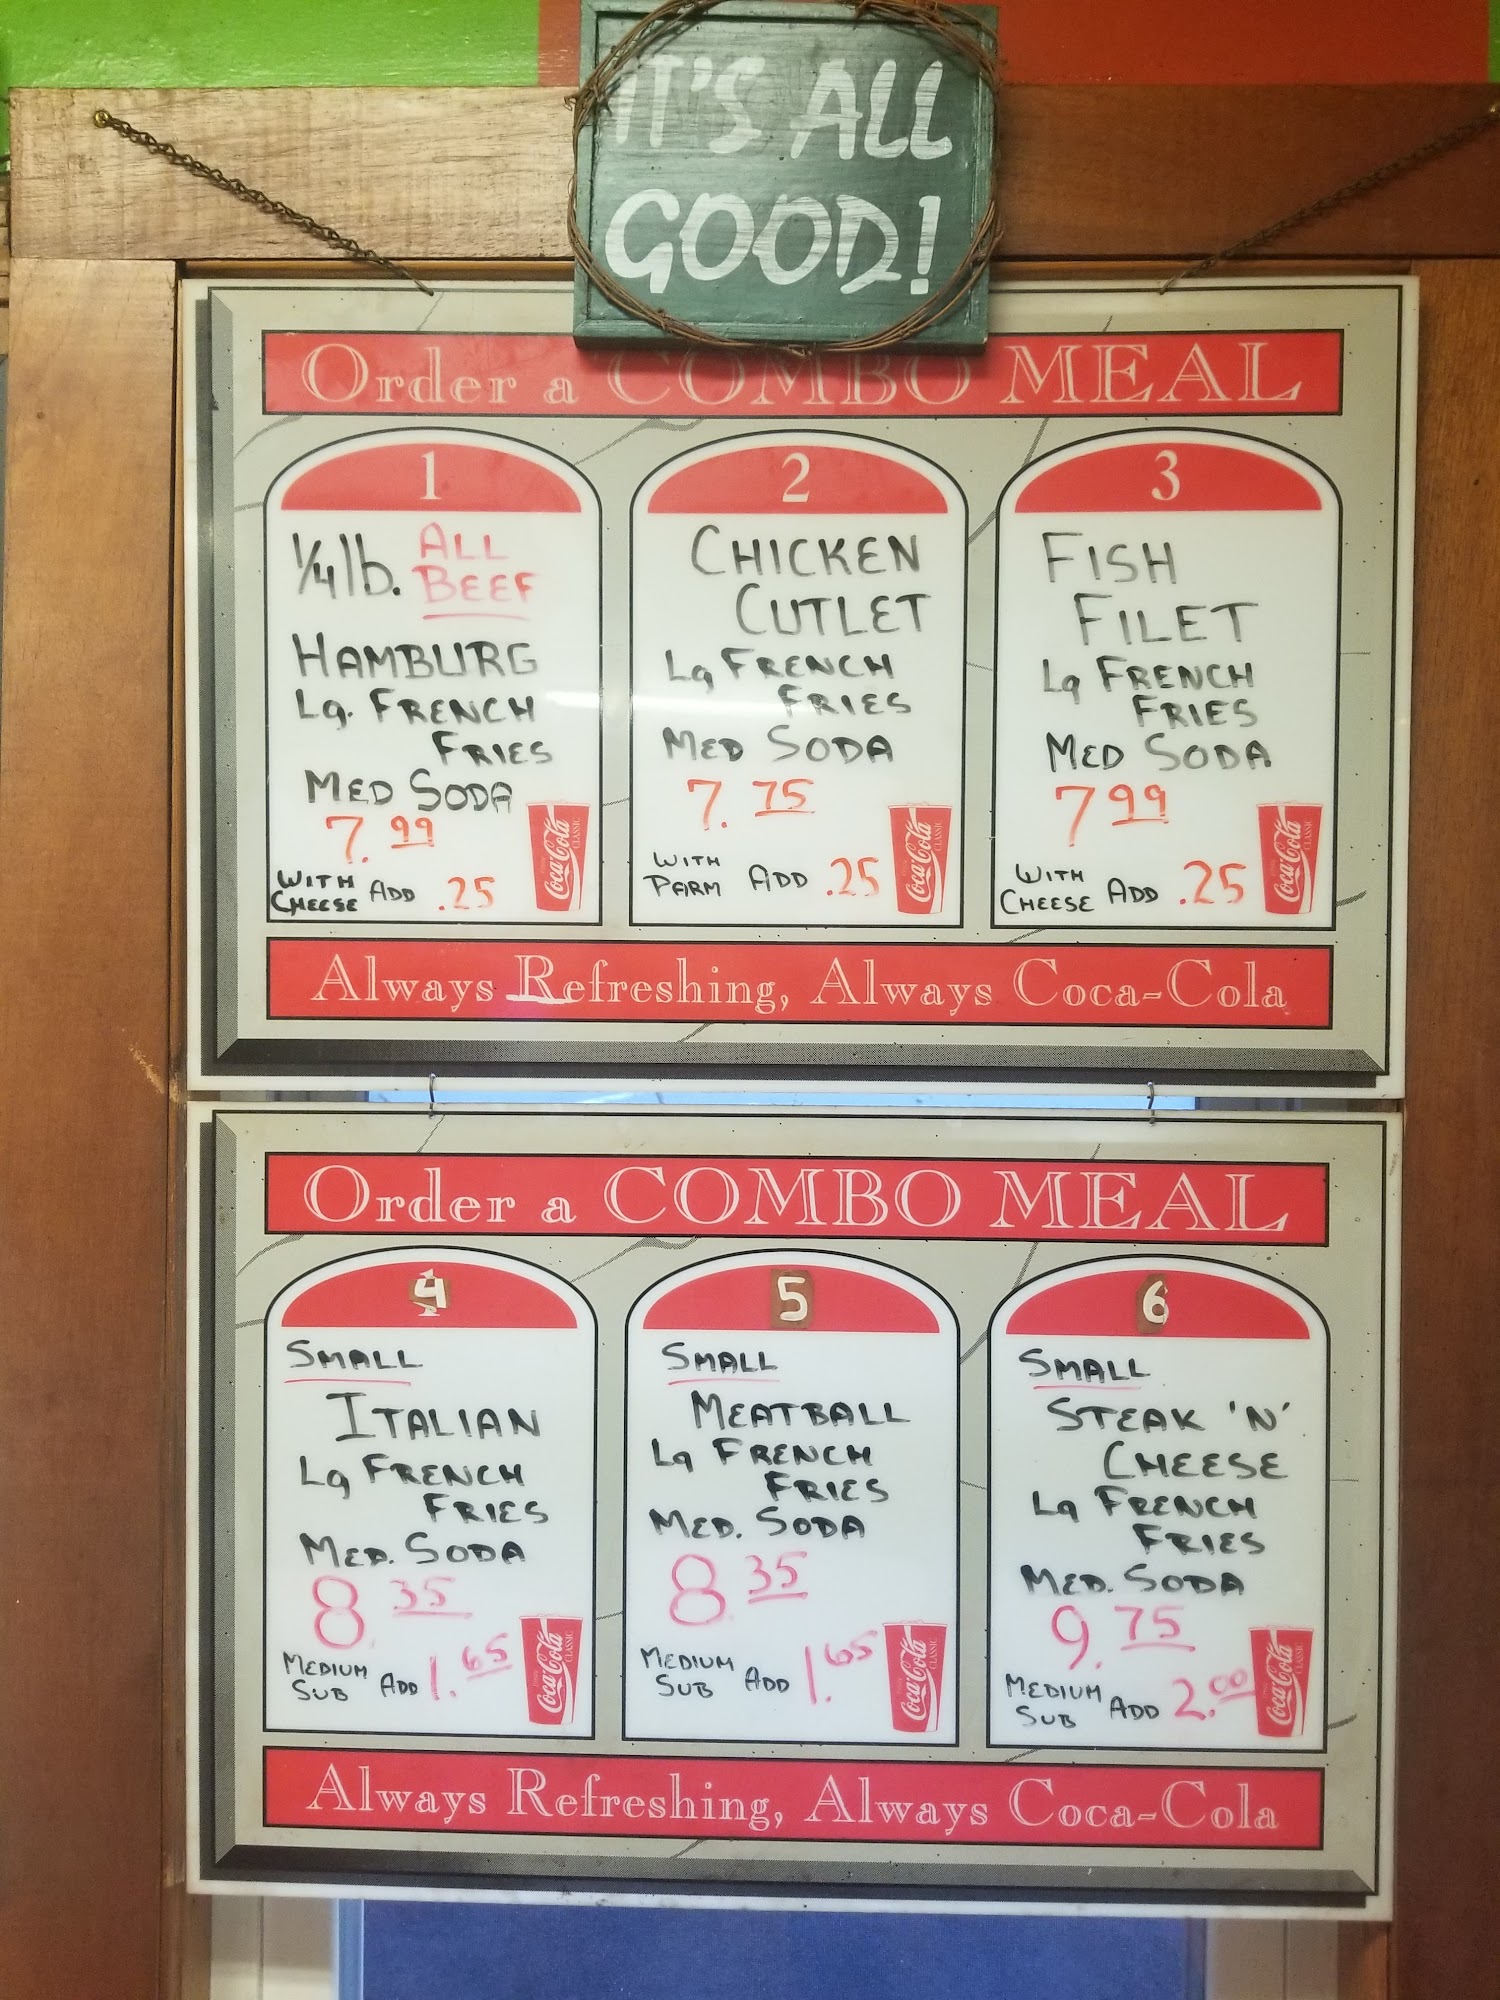 IT'S ALL
GOOD!
Order a COMBO MEAL
1
1/4 lb. ALL
BEEF
HAMBURG
Lg. FRENCH
FRIES
MED SODA
7.99
WITH
CHEESE ADD .25
Coca-Cola
CLASSIC
2
CHICKEN
CUTLET
Lg FRENCH
FRIES
MED SODA
7.75
WITH
PARM ADD .25
Coca-Cola
CLASSIC
3
FISH
FILET
Lg FRENCH
FRIES
MED SODA
7 99
WITH
CHEESE ADD .25
Coca-Cola
CLASSIC
Always Refreshing, Always Coca-Cola
Order a COMBO MEAL
4
SMALL
ITALIAN
Lg FRENCH
FRIES
MED. SODA
8.35
MEDIUM
SUB ADD 1.65
Coca-Cola
CLASSIC
5
SMALL
MEATBALL
Lg FRENCH
FRIES
MED. SODA
8.35
MEDIUM
SUB ADD 1.65
Coca-Cola
CLASSIC
6
SMALL
STEAK 'N'
CHEESE
Lg FRENCH
FRIES
MED. SODA
9.75
MEDIUM
SUB ADD 2.00
Coca-Cola
CLASSIC
Always Refreshing, Always Coca-Cola